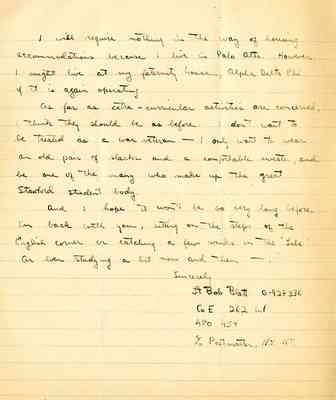 I will require nothing in the way of housing
accommodations because I live in Palo Alto. However
I might live at my fraternity house, Alpha Delta Phi
if it is again operating.
As far as extra-curricular activities are concerned,
I think they should be as before. I don't want to
be treated as a war veteran — I only want to wear
an old pair of slacks and a comfortable sweater, and
be one of the many who make up the great
Stanford student body.
And I hope it won't be so very long before
I'm back with you, sitting on the steps of the
English corner or catching a few winks in the "Libe"
Or even studying a bit now and then —.
Sincerely
Lt Bob Blatt O-927336
Co E 262 Inf
APO 454
c/o Postmaster, N.Y. N.Y.